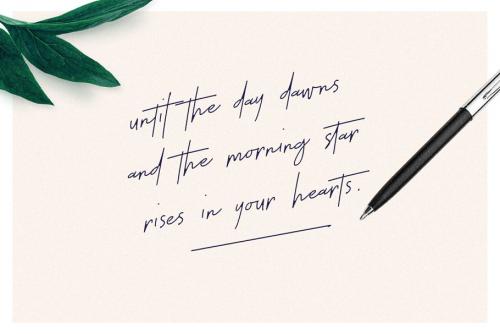 until the day dawns
and the morning star
rises in your hearts.